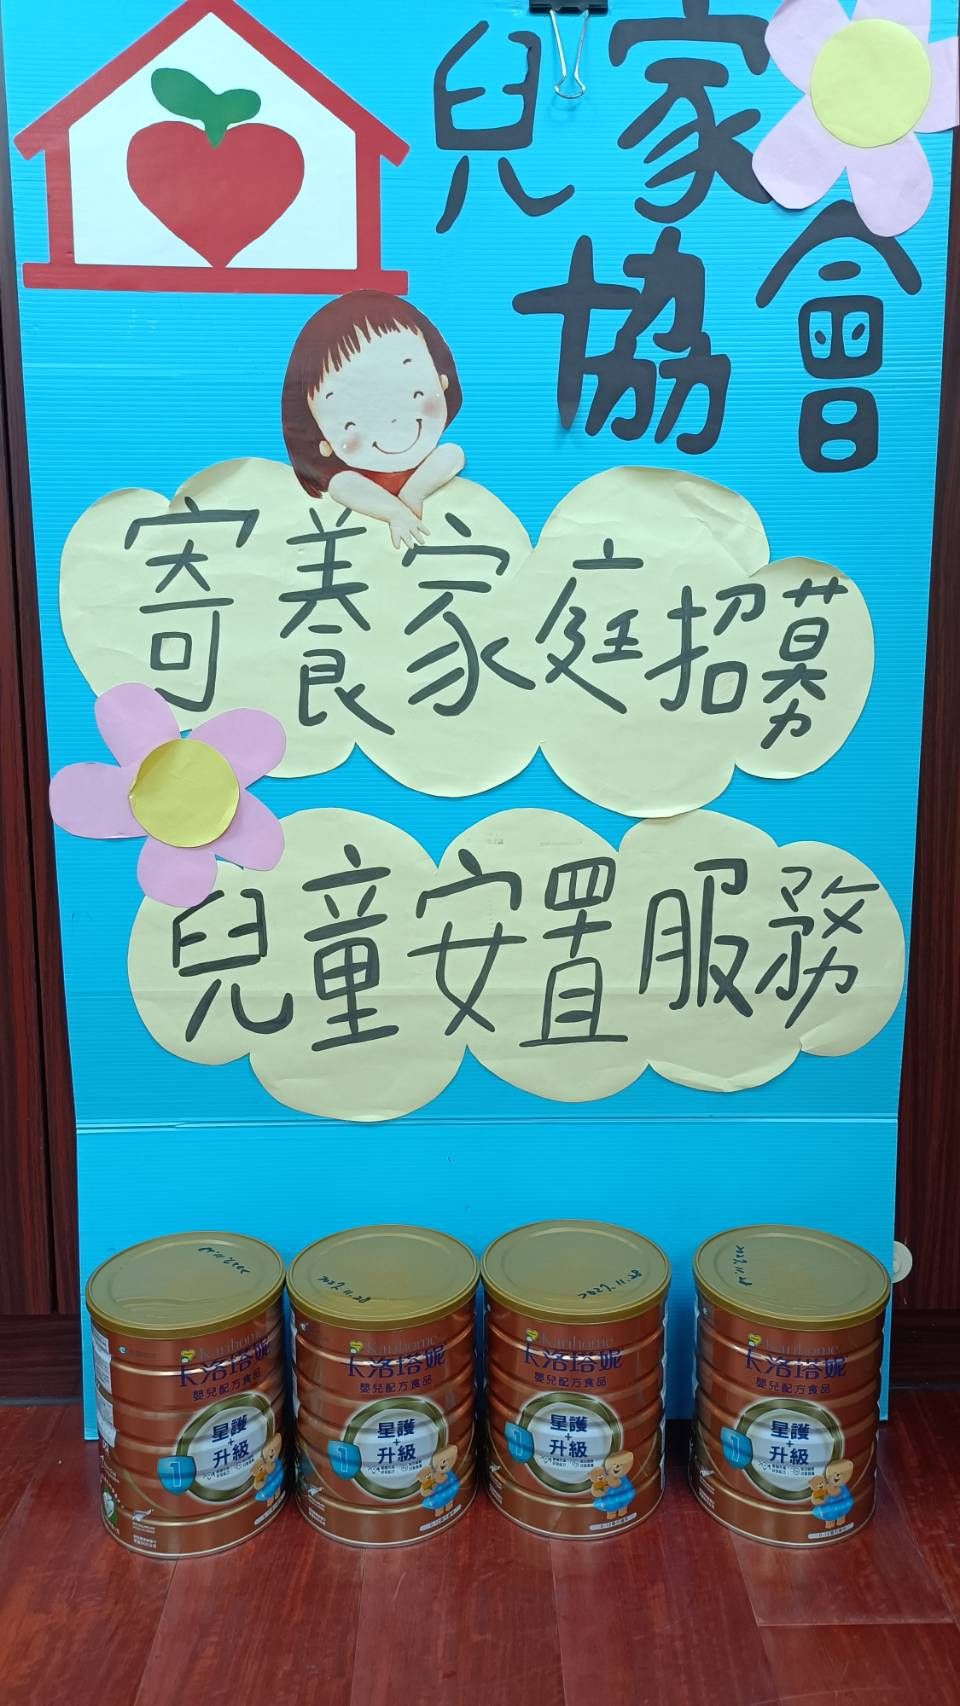 兒家
協會
寄養家庭招募
兒童安置服務
2027.11.28
Karihome
卡洛塔妮
嬰兒配方食品
星護
+
升級
1
Karihome
卡洛塔妮
嬰兒配方食品
星護
+
升級
1
Karihome
卡洛塔妮
嬰兒配方食品
星護
+
升級
1
Karihome
卡洛塔妮
嬰兒配方食品
星護
+
升級
1